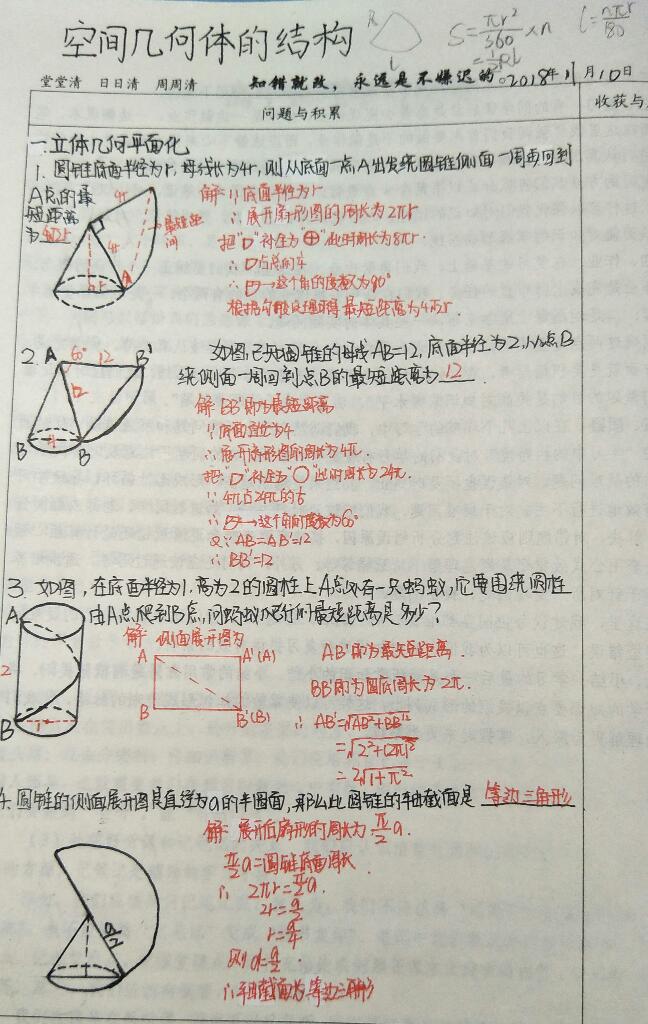 空间几何体的结构
R
L
S=πr²/360×n
=½Rl
l=nπr/180
堂堂清 日日清 周周清 知错就改，永远是不嫌迟的。2018年11月10日
问题与积累
收获与
一.立体几何平面化
1. 圆锥底面半径为r, 母线长为4r, 则从底面一点A出发绕圆锥侧面一周再回到
A点的最
短距离
为 4√2r
4r
4r
A
最短距
解: ∵底面半径为r
∴展开扇形图的周长为2πr
把"D"补全为"⊕"此时周长为8πr
∴D占总的¼
∴
根据勾股定理得最短距离为4√2r
2.
A
60°
12
B'
12
4
B
B
如图,已知圆锥的母线AB=12, 底面半径为2,从点B
绕侧面一周回到点B的最短距离为 12 .
解: BB'即为最短距离
∵底面直径为4
∴展开扇形图的周长为4π
把"D"补全为"○"此时周长为24π.
∵4π占24π的⅙
∴ →这个角的度数为60°
又∵AB=AB'=12
∴BB'=12
3. 如图, 在底面半径为1, 高为2的圆柱上A点处有一只蚂蚁, 它要围绕圆柱
由A点爬到B点, 问蚂蚁爬行的最短距离是多少?
A
2
B
1
解: 侧面展开图为
A
A'(A)
B
B'(B)
AB'即为最短距离.
BB'即为圆底周长为2π.
∴AB'=√AB²+BB'²
=√2²+(2π)²
=2√1+π²
4. 圆锥的侧面展开图是直径为a的半圆面, 那么此圆锥的轴截面是 等边三角形
a/2
解: 展开后扇形的周长为π/2a.
π/2a=圆锥底面周长
∴2πr=π/2a.
2r=a/2
r=a/4
则d=a/2
∴轴截面为等边三角形